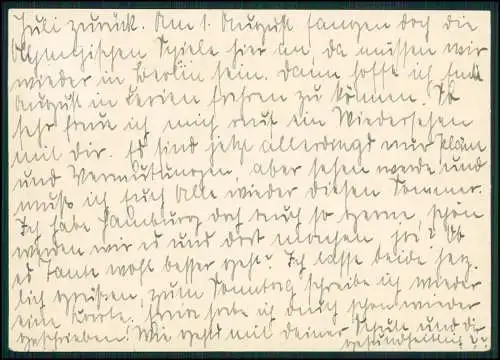 Juli zurück. Am 1. August fangen doch die
Olympischen Spiele hier an, da müssen wir
wieder in Berlin sein. Dann hoffe ich Ende
August in Ferien fahren zu können. So
sehr freue ich mich auf ein Wiedersehen
mit dir. Es sind jetzt allerdings nur Pläne
und Vermutungen, aber sehen werde und
muß ich Euch Alle wieder diesen Sommer.
Ich habe Hamburg doch auch so gerne, schön
werden wir es uns dort machen, ja? Ob
es Tante wohl besser geht? Ich lasse beide herz-
lich grüßen, zum Sonntag schreibe ich wieder
eine Karte. habe ich auch schon wieder
geschrieben. Wie gehts mit deiner Schule und die
Gesundheit